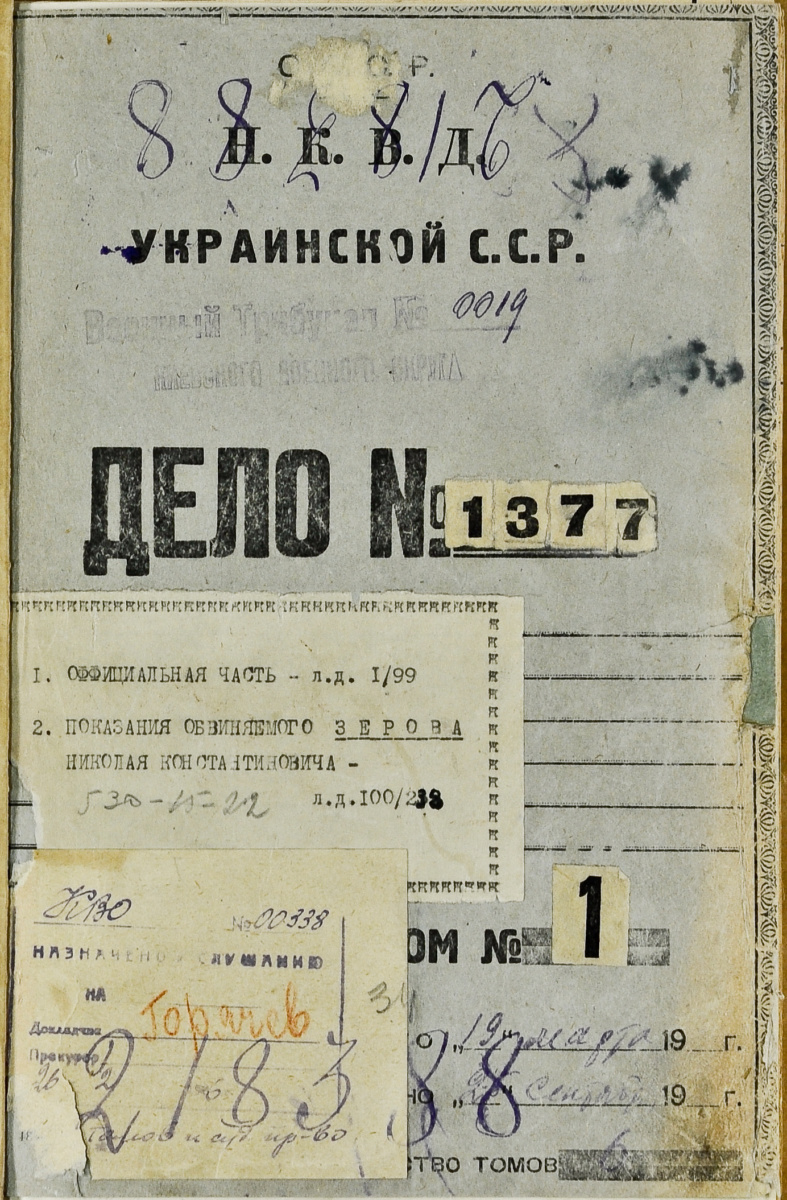 С Р.
8 8 8 8 1
Н. К. В. Д.
УКРАИНСКОЙ С.С.Р.
Военный Трибунал № 0019
КИЕВСКОГО ВОЕННОГО ОКРУГА
ДЕЛО № 1377
1. ОФФИЦИАЛЬНАЯ ЧАСТЬ - л.д. I/99
2. ПОКАЗАНИЯ ОБВИНЯЕМОГО ЗЕРОВА
НИКОЛАЯ КОНСТАНТИНОВИЧА -
530-15-22 л.д.100/238
КВО
№ 00338
НАЗНАЧЕНО СЛУШАНИЮ
НА
Горячев
Докладчик
Прокурор
26
2 1 8 3 8 8
и суд. пр-во
ОМ № 1
о „19" марта 19 г.
но „ " сентября 19 г.
СТВО ТОМОВ